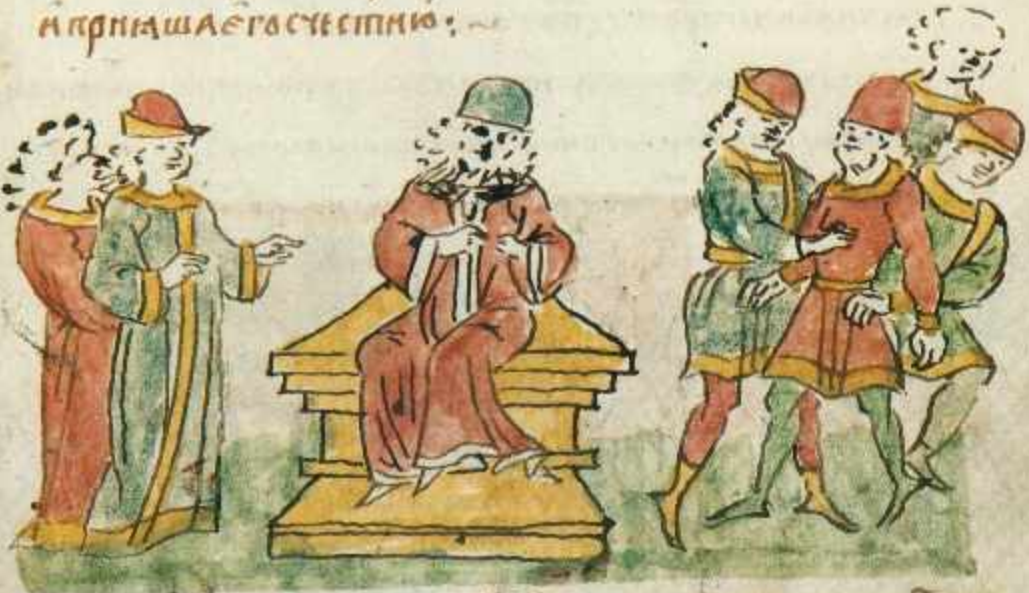 и прияша его с честию:~